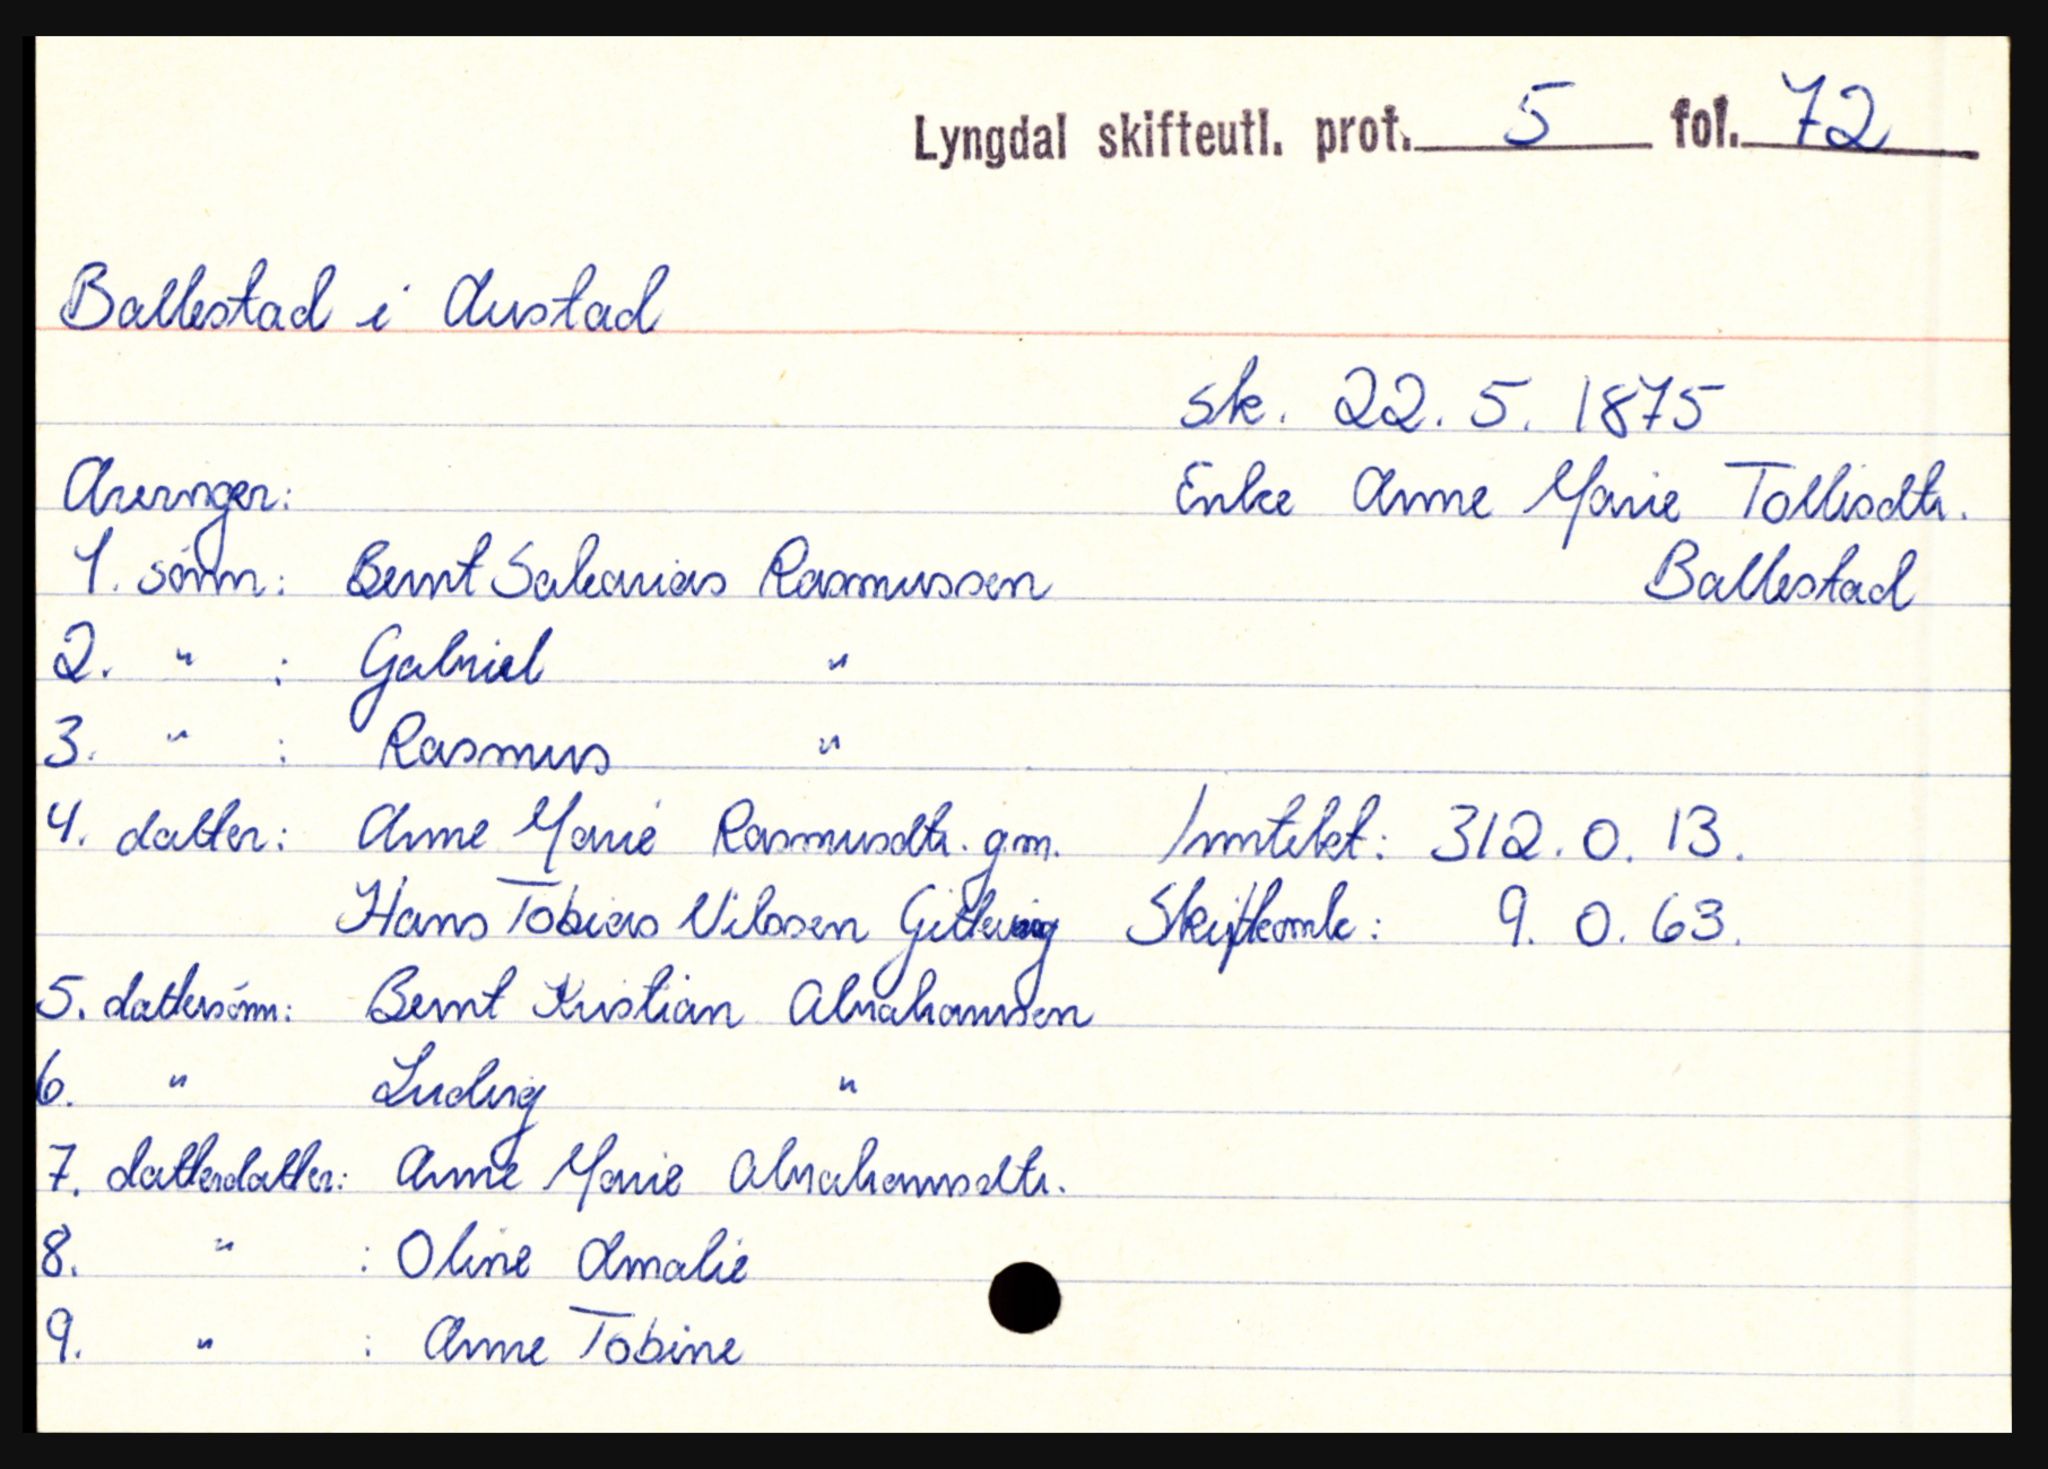 Lyngdal skifteutl. prot. 5 fol. 72
Ballestad i Austad
sk. 22.5.1875
Arvinger: Enke Anne Marie Tollisdtr.
1. sönn: Bernt Sakarias Rasmussen Ballestad
2. " : Gabriel "
3. " : Rasmus "
4. datter: Anne Marie Rasmusdtr. gm. Inntekt: 312.0.13.
Hans Tobias Nilssen Gitlevåg Skiftomk: 9.0.63.
5. dattersönn: Bernt Kristian Abrahamsen
6. " Ludvig "
7. datterdatter: Anne Marie Abrahamsdtr.
8. " : Oline Amalie
9. " : Anne Tobine